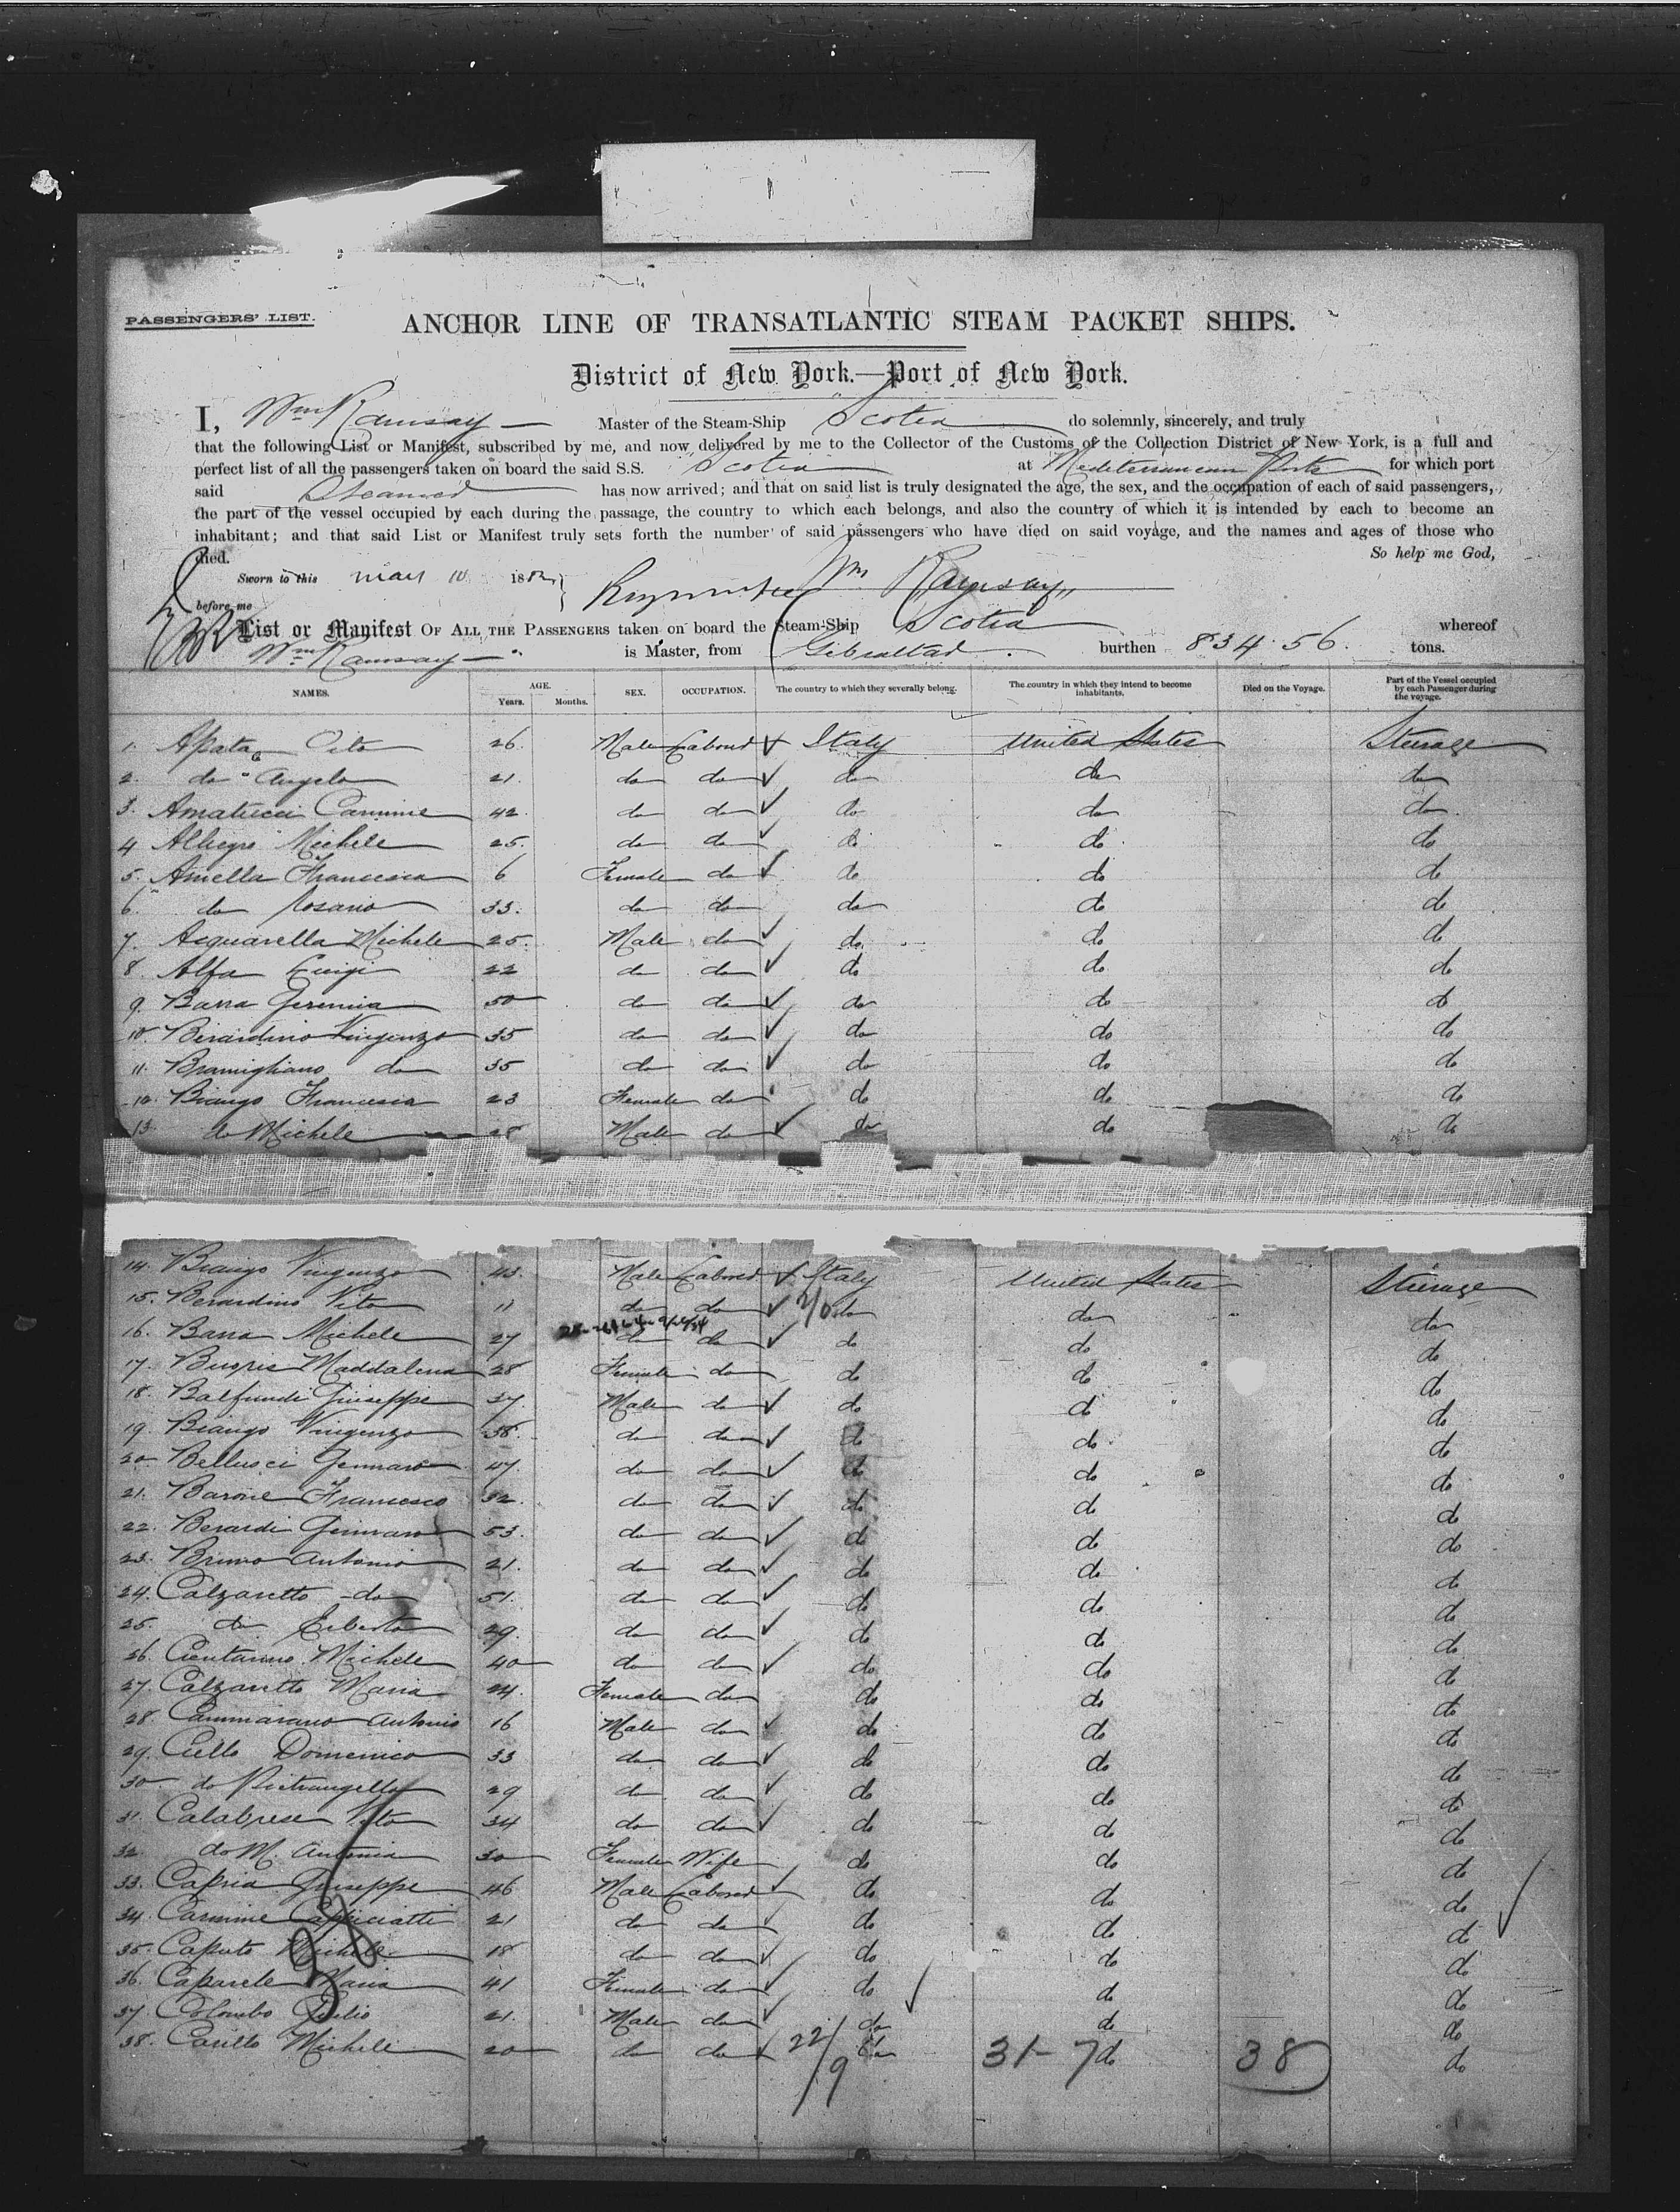 PASSENGERS' LIST.
ANCHOR LINE OF TRANSATLANTIC STEAM PACKET SHIPS.
District of New York.—Port of New York.
I, Wm Ramsay Master of the Steam-Ship Scotia do solemnly, sincerely, and truly
that the following List or Manifest, subscribed by me, and now delivered by me to the Collector of the Customs of the Collection District of New York, is a full and
perfect list of all the passengers taken on board the said S.S. Scotia at Mediterranean Ports for which port
said Steamed has now arrived; and that on said list is truly designated the age, the sex, and the occupation of each of said passengers,
the part of the vessel occupied by each during the passage, the country to which each belongs, and also the country of which it is intended by each to become an
inhabitant; and that said List or Manifest truly sets forth the number of said passengers who have died on said voyage, and the names and ages of those who
died. So help me God,
Sworn to this May 10 188
Wm Ramsay
before me
List or Manifest OF ALL THE PASSENGERS taken on board the Steam-Ship Scotia whereof
Wm Ramsay is Master, from Gibraltar burthen 834.56. tons.
NAMES. AGE. Years. Months. SEX. OCCUPATION. The country to which they severally belong. The country in which they intend to become inhabitants. Died on the Voyage. Part of the Vessel occupied by each Passenger during the voyage.
1. Apata Vito 26 Male Labour Italy United States Steerage
2. do Angelo 21. do do do do do
3. Amatucci Carmine 42 do do do do do
4 Allegro Michele 25. do do do do do
5. Aniella Francesca 6 Female do do do do
6. do Rosario 33. do do do do do
7. Acquarella Michele 25. Male do do do do
8. Alfa Luigi 22 do do do do do
9. Barra Geremia 50 do do do do do
10. Berardino Vingenzo 35 do do do do do
11. Bramigliano do 35 do do do do do
12. Biango Francesca 23 Female do do do do
13. do Michele 28 Male do do do do
14. Biango Vingenzo 43. Male Labour Italy United States Steerage
15. Berardino Vito 11 do do 2/0 do do do
16. Barra Michele 27 do do do do do
17. Maddalena 28 Female do do do do
18. Balfundi Giuseppe 37. Male do do do do
19. Biango Vingenzo 38. do do do do do
20 Bellusci Gennaro 47. do do do do do
21. Barone Francesco 32. do do do do do
22. Berardi Gennaro 53. do do do do do
23. Bruno Antonio 21. do do do do do
24. Calzaretto do 51. do do do do do
25. do 29. do do do do do
26. Michele 40 do do do do do
27. Calzaretto Maria 24. Female do do do do
28. Cammarano Antonio 16 Male do do do do
29. Ciello Domenico 33 do do do do do
30 do Pietrangello 29 do do do do do
31. Calabrese Vito 34 do do do do do
32. do M. Antonia 30 Female Wife do do do
33. Capria Giuseppe 46 Male Labour do do do
34. Carmine Cappiciatti 21 do do do do do
35. Caputo Michele 18 do do do do do
36. Caparele Maria 41 Female do do do do
37. Colombo Giulio 21. Male do do do do
38. Carillo Michele 20 do do 22/9 do 31-7 do 38 do